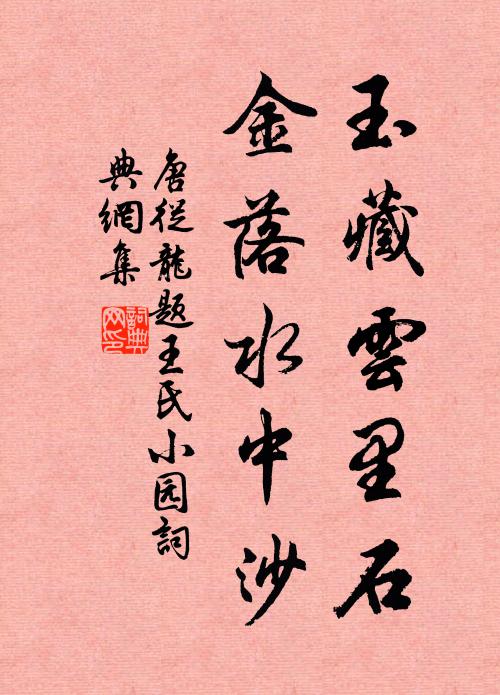 玉藏雲里石
金落水中沙
唐從龍題王氏小园詞
典網集
詞典
网印